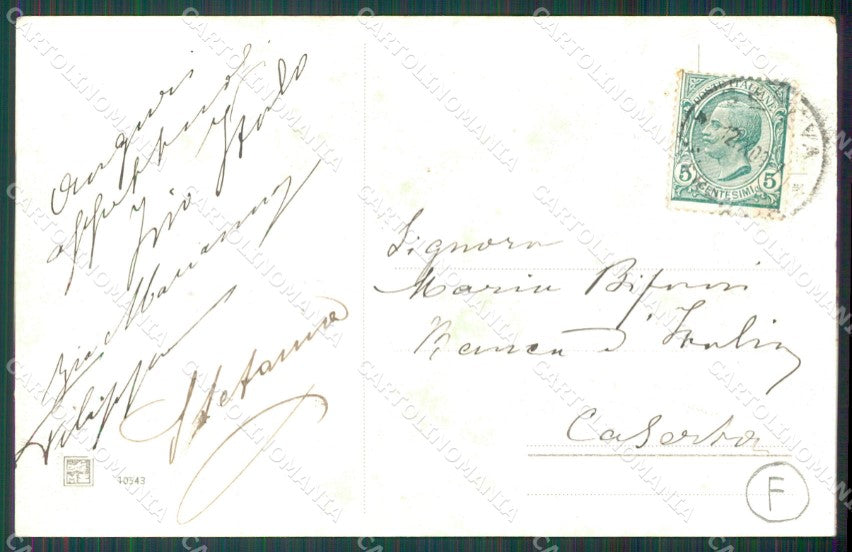 Auguri
affettuosi
Zio Italo
Zia Marianna
Filippo
Stefania
10543
POSTE ITALIANE
5 CENTESIMI 5
Signora
Maria
Banca d'Italia
Caserta
F
CARTOLINOMANIA